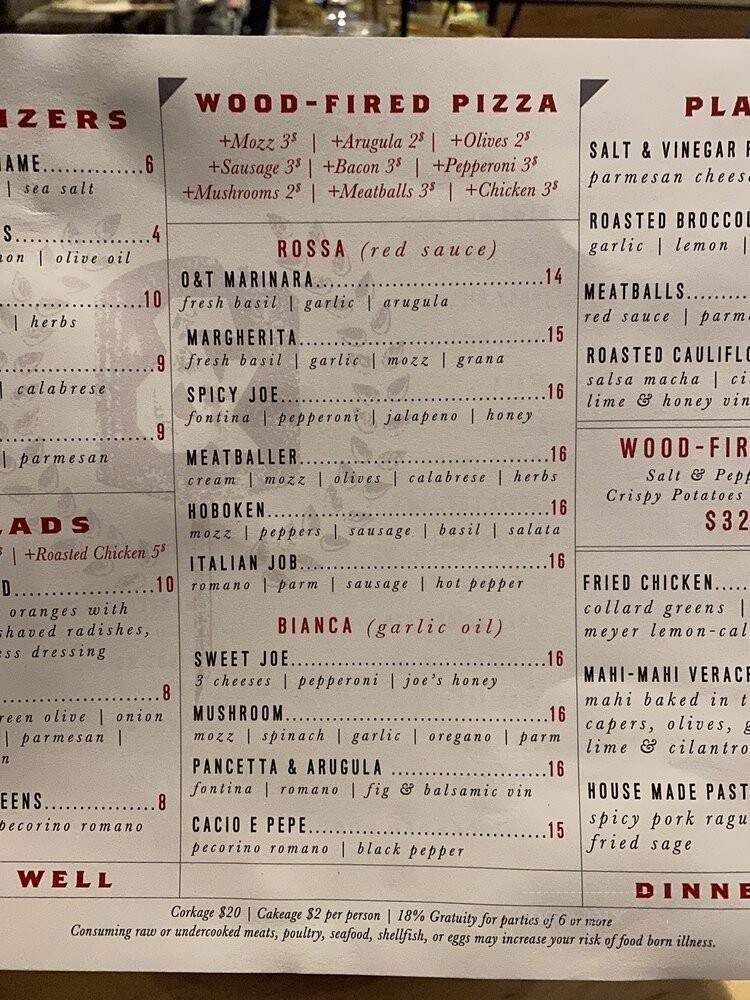 IZERS
AME..............6
| sea salt
S..................4
on | olive oil
....................10
| herbs
....................9
| calabrese
....................9
| parmesan
ADS
| +Roasted Chicken 5$
D..................10
oranges with
shaved radishes,
ss dressing
....................8
reen olive | onion
| parmesan |
n
EENS..............8
pecorino romano
WELL
WOOD-FIRED PIZZA
+Mozz 3$ | +Arugula 2$ | +Olives 2$
+Sausage 3$ | +Bacon 3$ | +Pepperoni 3$
+Mushrooms 2$ | +Meatballs 3$ | +Chicken 3$
ROSSA (red sauce)
O&T MARINARA..............................14
fresh basil | garlic | arugula
MARGHERITA..............................15
fresh basil | garlic | mozz | grana
SPICY JOE..............................16
fontina | pepperoni | jalapeno | honey
MEATBALLER..............................16
cream | mozz | olives | calabrese | herbs
HOBOKEN..............................16
mozz | peppers | sausage | basil | salata
ITALIAN JOB..............................16
romano | parm | sausage | hot pepper
BIANCA (garlic oil)
SWEET JOE..............................16
3 cheeses | pepperoni | joe's honey
MUSHROOM..............................16
mozz | spinach | garlic | oregano | parm
PANCETTA & ARUGULA ....................16
fontina | romano | fig & balsamic vin
CACIO E PEPE..............................15
pecorino romano | black pepper
PLA
SALT & VINEGAR
parmesan chees
ROASTED BROCCOL
garlic | lemon |
MEATBALLS.......
red sauce | parm
ROASTED CAULIFLO
salsa macha | ci
lime & honey vin
WOOD-FIR
Salt & Pepp
Crispy Potatoes
$32
FRIED CHICKEN....
collard greens |
meyer lemon-cal
MAHI-MAHI VERACR
mahi baked in t
capers, olives, g
lime & cilantro
HOUSE MADE PAST
spicy pork ragu
fried sage
DINNE
Corkage $20 | Cakeage $2 per person | 18% Gratuity for parties of 6 or more
Consuming raw or undercooked meats, poultry, seafood, shellfish, or eggs may increase your risk of food born illness.